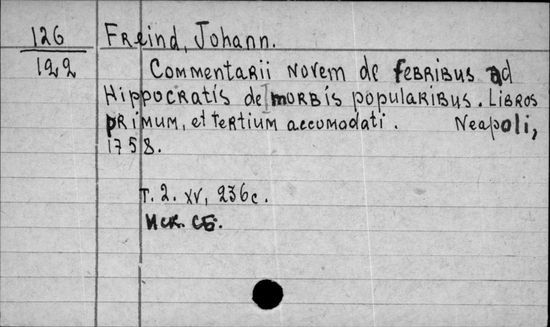 126 Freind, Johann.
122 Commentarii novem de febribus ad
Hippocratis de morbis popularibus. Libros
primum, et tertium accomodati. Neapoli,
1758.
T. 2. XV, 236 с.
Иск. СБ.